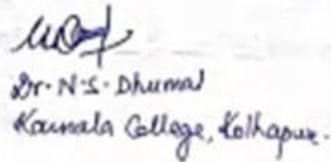 Dr. N. S. Dhumal
Kamala College, Kolhapur.